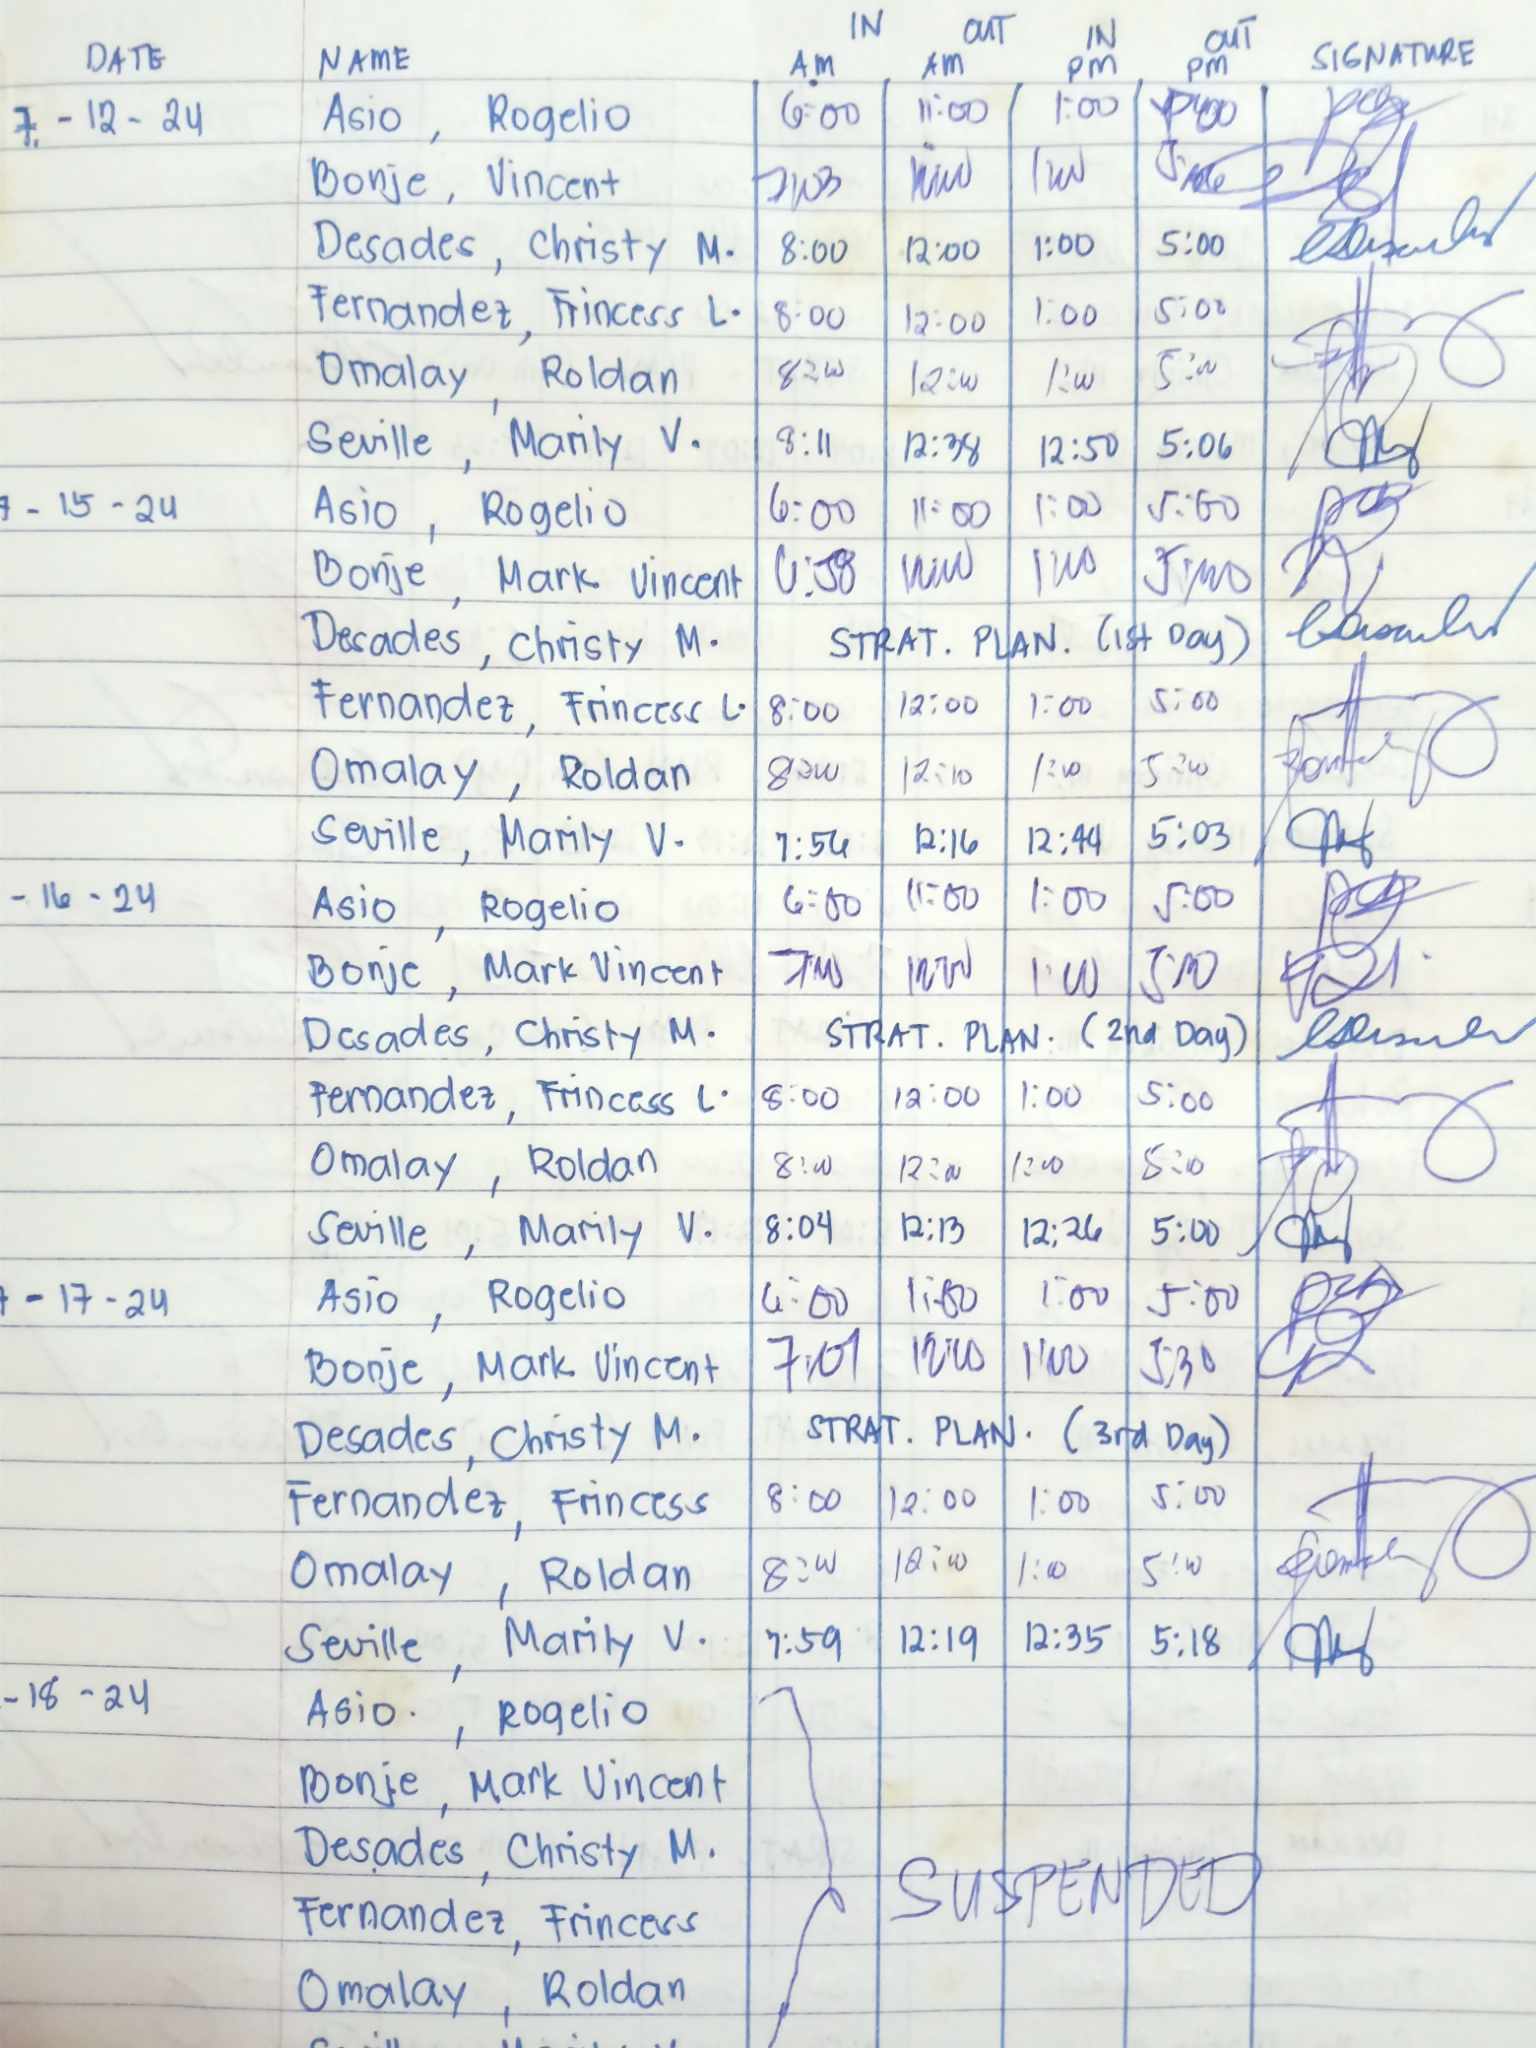 IN OUT IN OUT
DATE NAME AM AM PM PM SIGNATURE
7-12-24 Asio, Rogelio 6:00 11:00 1:00
Bonje, Vincent 7:03
Desades, Christy M. 8:00 12:00 1:00 5:00
Fernandez, Frincess L. 8:00 12:00 1:00 5:00
Omalay, Roldan 8:00 12:00 1:00 5:00
Seville, Marily V. 8:11 12:38 12:50 5:06
7-15-24 Asio, Rogelio 6:00 11:00 1:00 5:00
Bonje, Mark Vincent 6:58 1:00 5:00
Desades, Christy M. STRAT. PLAN. (1st Day)
Fernandez, Frincess L. 8:00 12:00 1:00 5:00
Omalay, Roldan 8:00 12:10 1:00 5:00
Seville, Marily V. 7:56 12:16 12:44 5:03
-16-24 Asio, Rogelio 6:00 11:00 1:00 5:00
Bonje, Mark Vincent 7:00 12:00 1:00
Desades, Christy M. STRAT. PLAN. (2nd Day)
Fernandez, Frincess L. 8:00 12:00 1:00 5:00
Omalay, Roldan 8:00 12:00 1:00 5:00
Seville, Marily V. 8:04 12:13 12:26 5:00
7-17-24 Asio, Rogelio 6:00 11:00 1:00 5:00
Bonje, Mark Vincent 7:01 12:00 1:00 5:30
Desades, Christy M. STRAT. PLAN. (3rd Day)
Fernandez, Frincess 8:00 12:00 1:00 5:00
Omalay, Roldan 8:00 12:00 1:00 5:00
Seville, Marily V. 7:59 12:19 12:35 5:18
-18-24 Asio, Rogelio
Bonje, Mark Vincent
Desades, Christy M.
SUSPENDED
Fernandez, Frincess
Omalay, Roldan